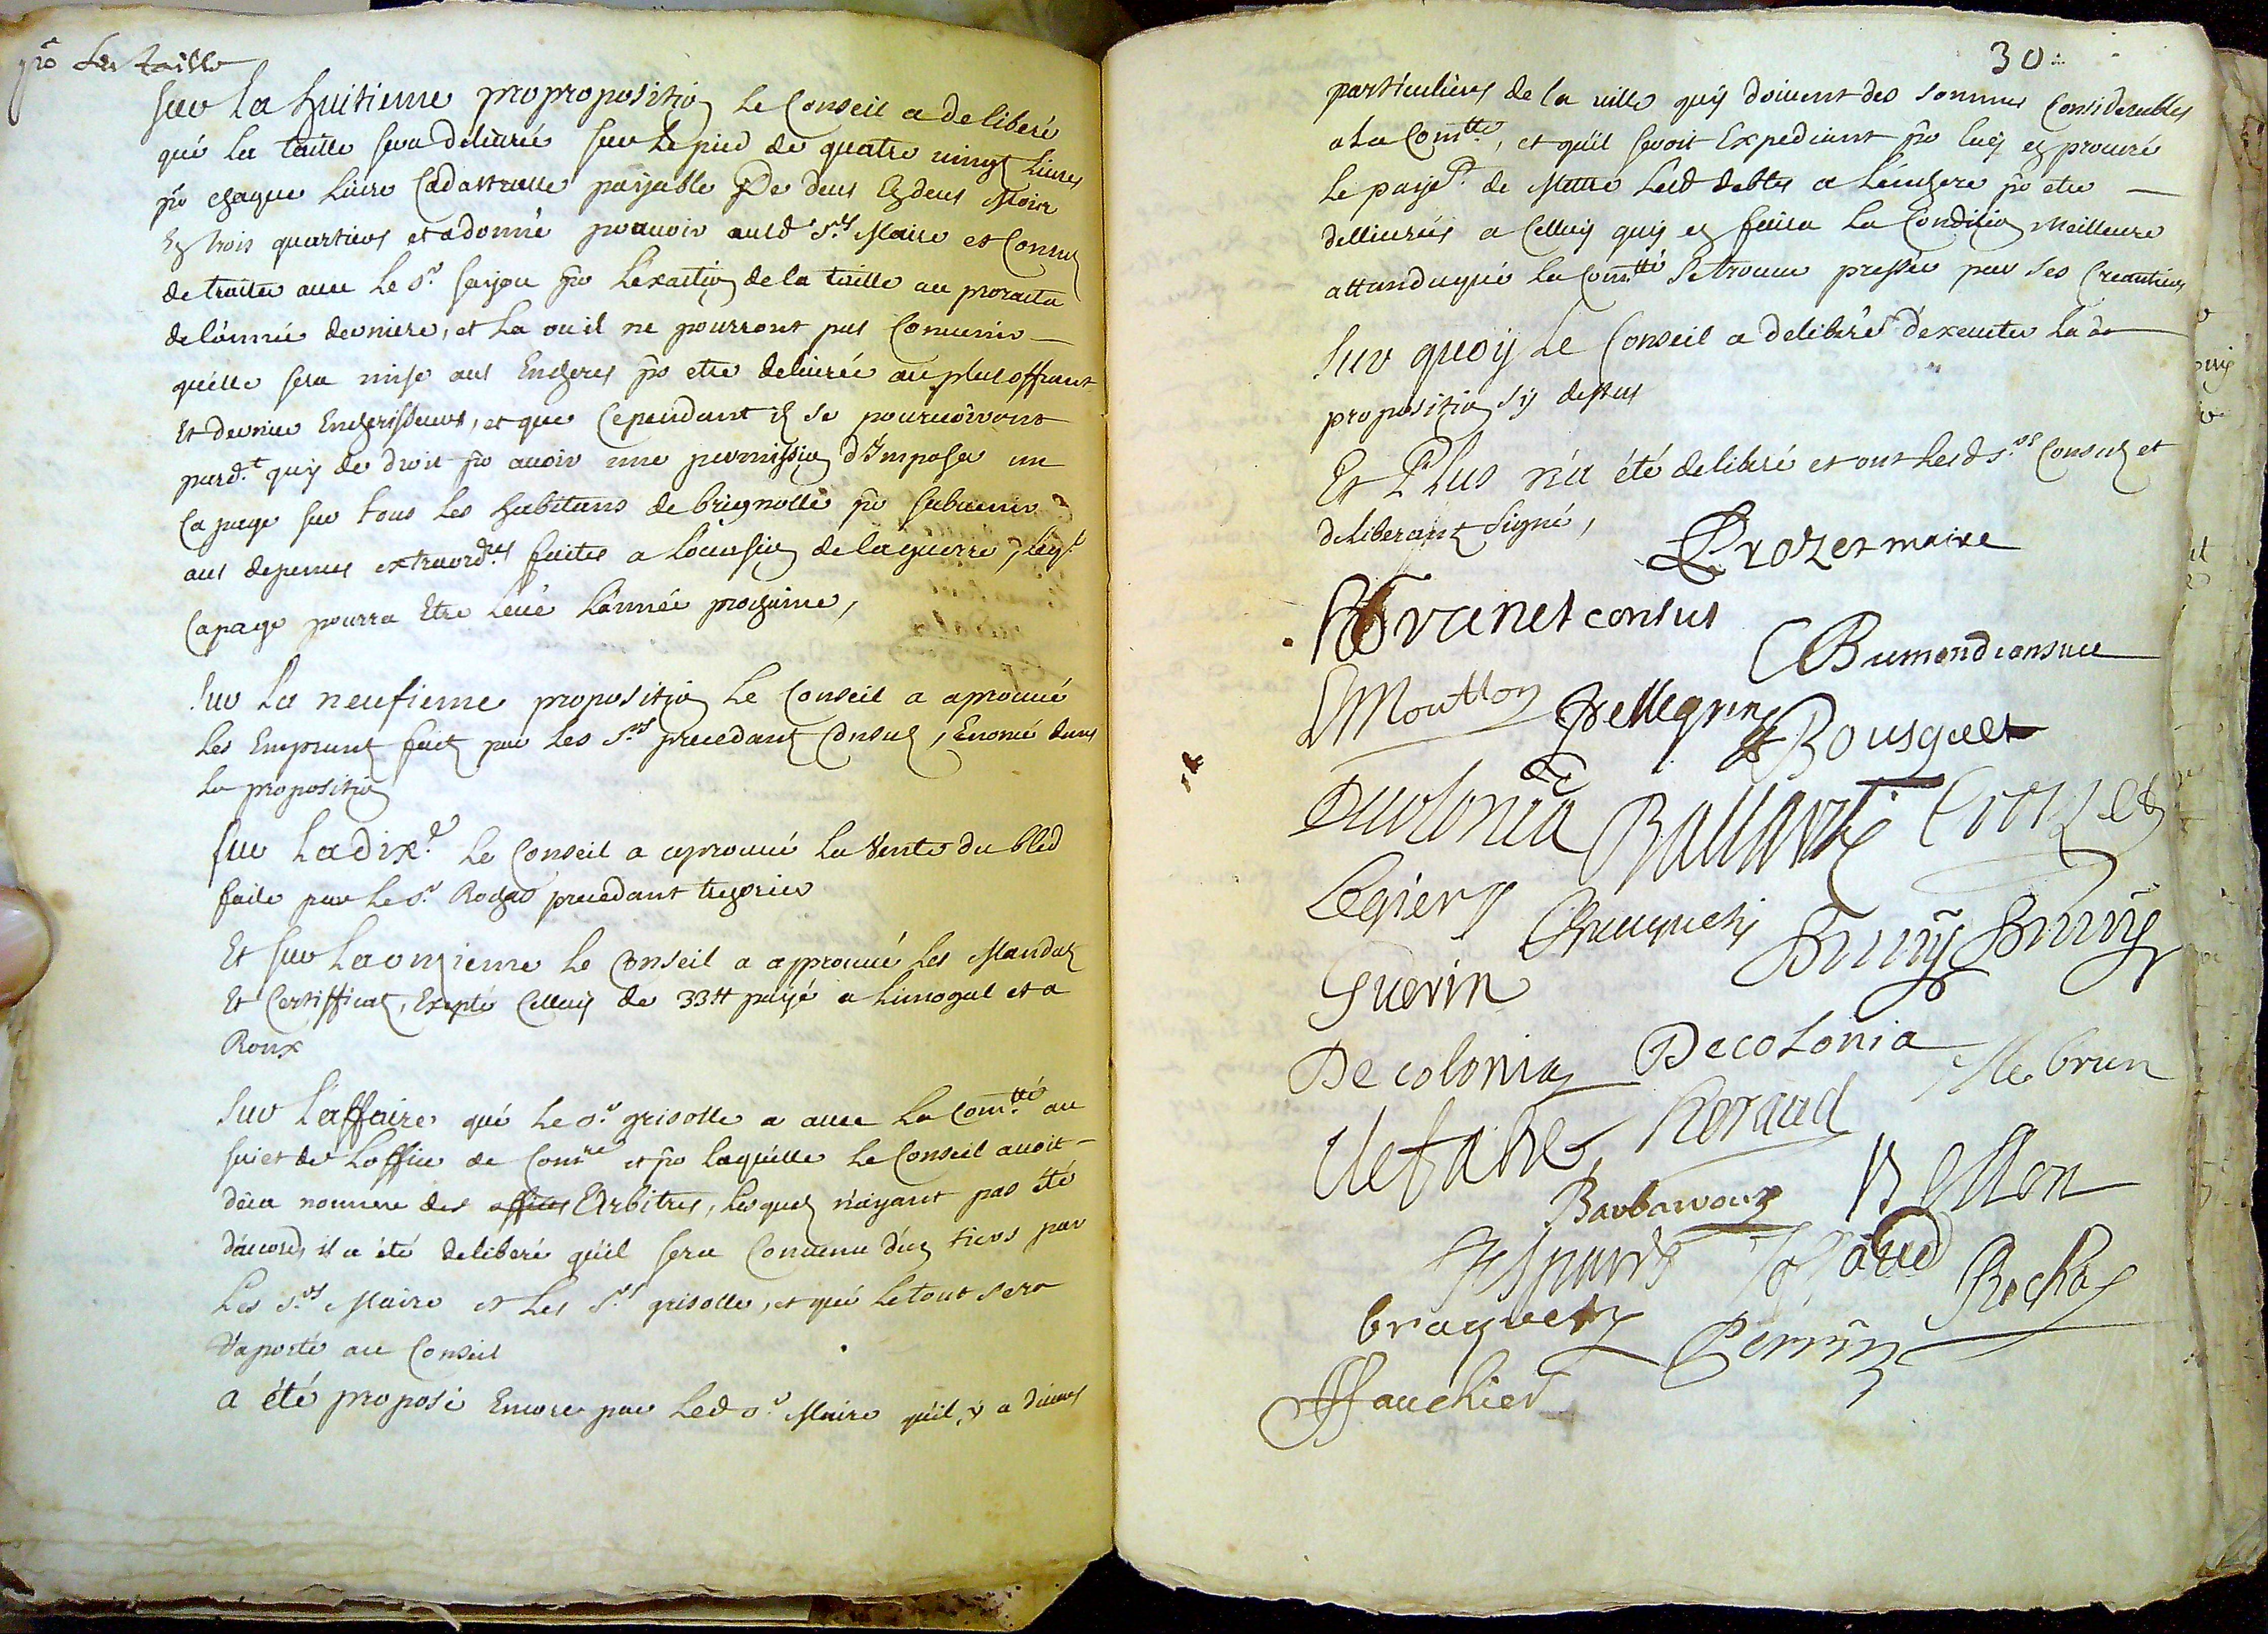 pro La taille
Sur la huitieme propropositiõ le Conseil a deliberé
qué la taille sera deliurée sur le pied de quatre vingt liures
pr chaque liure Cadastralle payable De deus En deus Mois
En trois quartiers et a donné pouuoir ausd Srs Maire et Consuls
de traiter auec le Sr pr L'exaction de la taille au prorata
de l'année derniere, et La ou il ne pourront pas Conuenir
qu'elle sera mise aus Encheres pr etre deliurée au plus offrant
Et dernier Encherisseur, et que Cependant ils se pouruoiront
pard.t quy de droit pr auoir une permission d'Imposer un
Capage sur tous les habitans de brignolle pr subuenir
aus depences extraord.res faites a l'ocasion de la guerre, leq.l
Capage pourra Etre leué L'année prochaine,
Sur La neufieme proposition Le Conseil a aprouué
les Emprunts faits par les Srs precedants Consuls, Enoncé dans
la proposition
Sur La dix.e le Conseil a aprouué la Vente du bled
faite par le Sr Rochas precedant tresorier
Et sur La onzieme le Conseil a approuué les Mandats
Et Certifficats, Exepté Celluy de 33 tt payé a Limogal et a
Roux
Sur L'affaire qué le Sr grisolle a auec La Com.tté au
suiet de L'office de Com.re et pr laquelle le Conseil auoit
deia nommé des offices Arbitres, lesquels n'ayant pas été
d'acord, il a été deliberé qu'il sera Conuenu d'un tiers par
Les Srs Maire et Les Srs grisolle, et qué le tout sera
raporté au Conseil
a été proposé Encore par Led Sr Maire qu'il y a diuers
30
particuliers de la ville quy doiuent des sommes Considerables
a La Com.tté, et qu'il seroit Expediant pr luy en procuré
le paye.t de Mettre Lesd debtes a L'enchere pr etre
delliurées a Celluy quy en faira La Condition Meilleure
attandu qué la Com.tté se trouue pressée par ses Creantiers
Sur quoy Le Conseil a deliberé d'executer La de
proposition sy dessus
Et Plus n'a été deliberé et ont Lesd Srs Consuls et
deliberants signé,
Crozet maire
Branet consul
Bumond consul
Moutton Pellegrin Bousquet
Decolonia Ballardy Crozet
Legier Brunÿ Brunÿ
Guerin
De colonia Decolonia Lebrun
Defabre Heraud
Barbaroux Bellon
Rochas
braquety Perrin
ffauchier